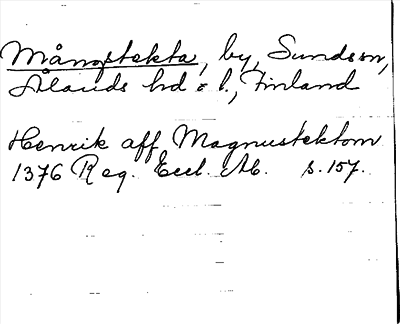 Mångstekta, by, Sundssn,
Ålands hd o l., Finland
Henrik aff Magnustektom
1376 Reg. Eccl. Ab. s. 157.